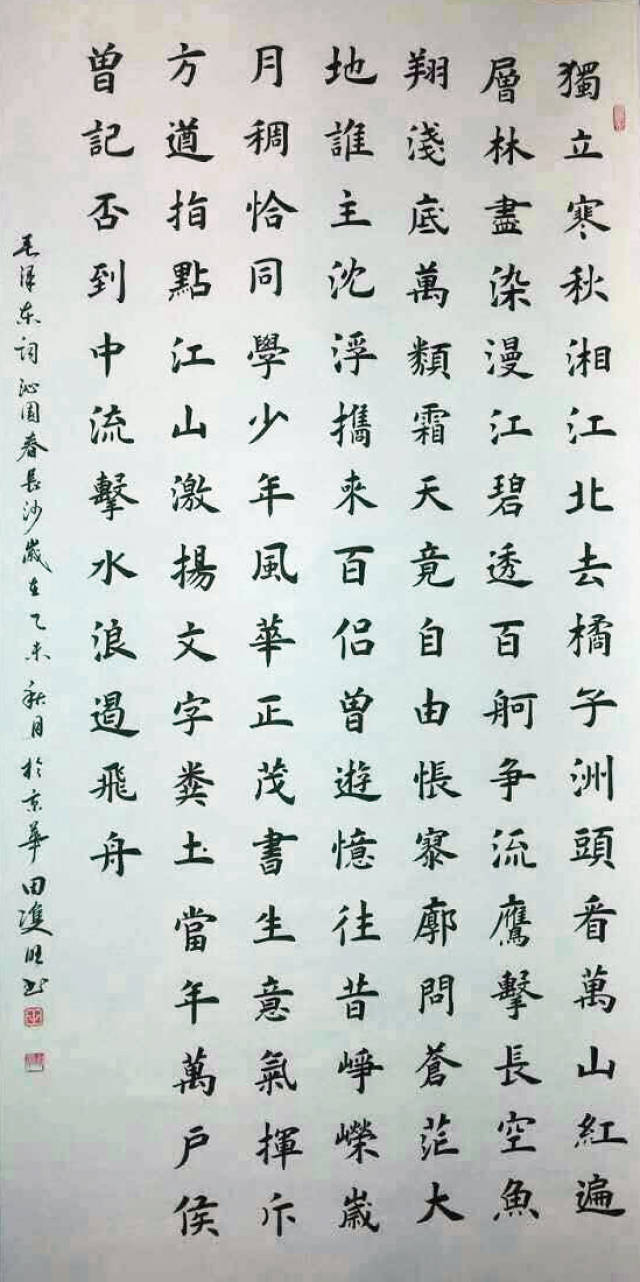 獨立寒秋湘江北去橘子洲頭看萬山紅遍
層林盡染漫江碧透百舸争流鷹擊長空魚
翔淺底萬類霜天竟自由悵寥廓問蒼茫大
地誰主沈浮攜來百侣曾遊憶往昔崢嶸歲
月稠恰同學少年風華正茂書生意氣揮斥
方遒指點江山激揚文字糞土當年萬户侯
曾記否到中流擊水浪遏飛舟
毛澤东词沁园春長沙歲在乙未秋月於京華田雙旺书